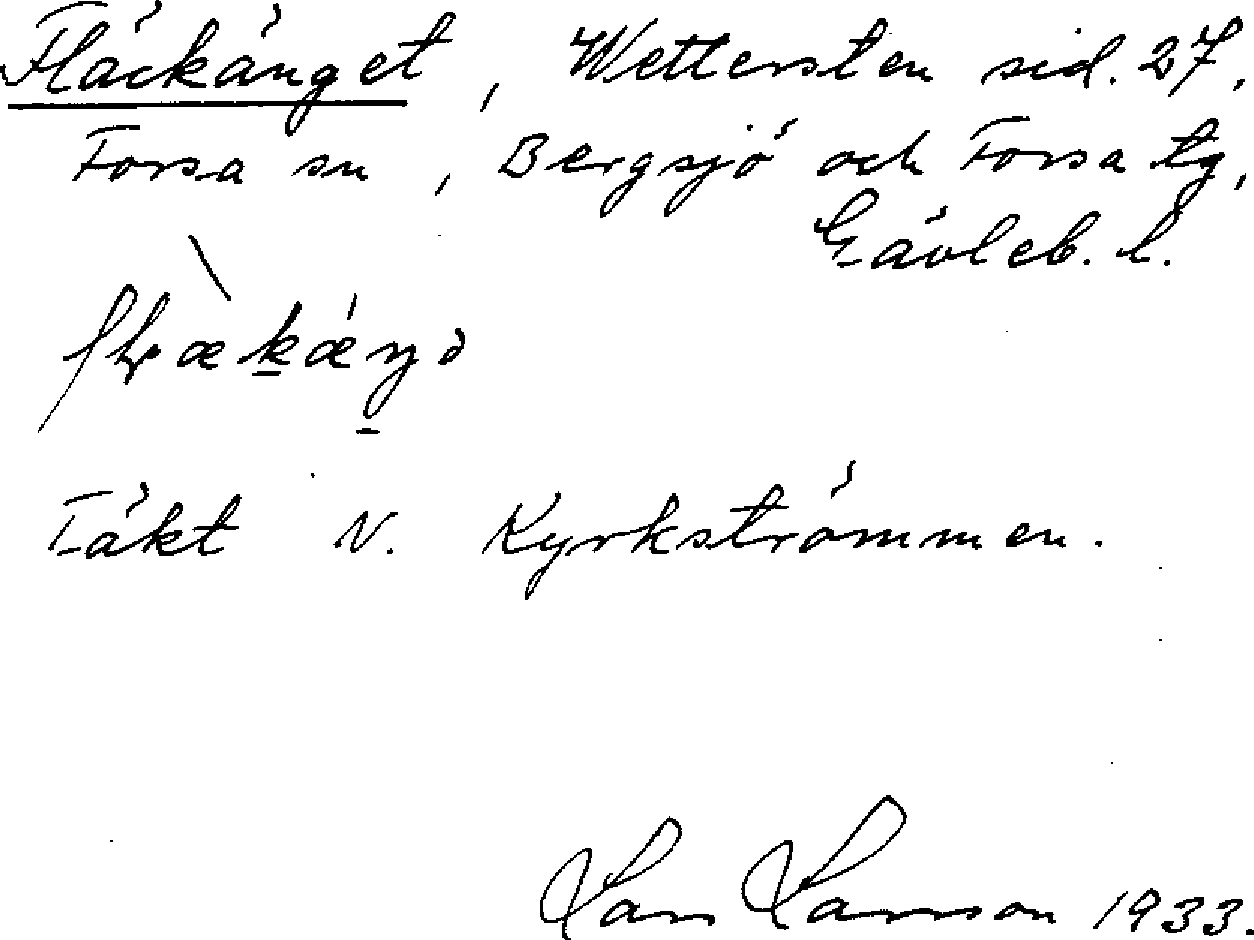 Fläckänget, Wettersten sid. 27,
Forsa sn, Bergsjö och Forsa tg,
Gävleb. l.
Täkt N. Kyrkströmmen.
Lars Larsson 1933.